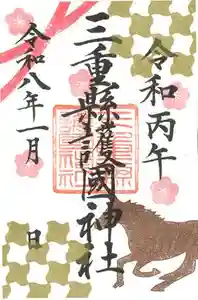 令和丙午
三重縣護國神社
令和八年一月 日